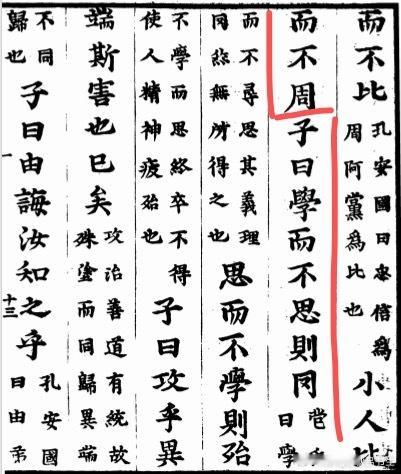 而不比孔安國曰忠信為周阿黨為比也小人比
而不周子曰學而不思則罔曰學
而不尋思其義理罔然無所得之也思而不學則殆
不學而思終卒不得使人精神疲殆也子曰攻乎異
端斯害也已矣攻治善道有統故殊塗而同歸異端
不同歸也子曰由誨汝知之乎孔安國曰由弟
十三